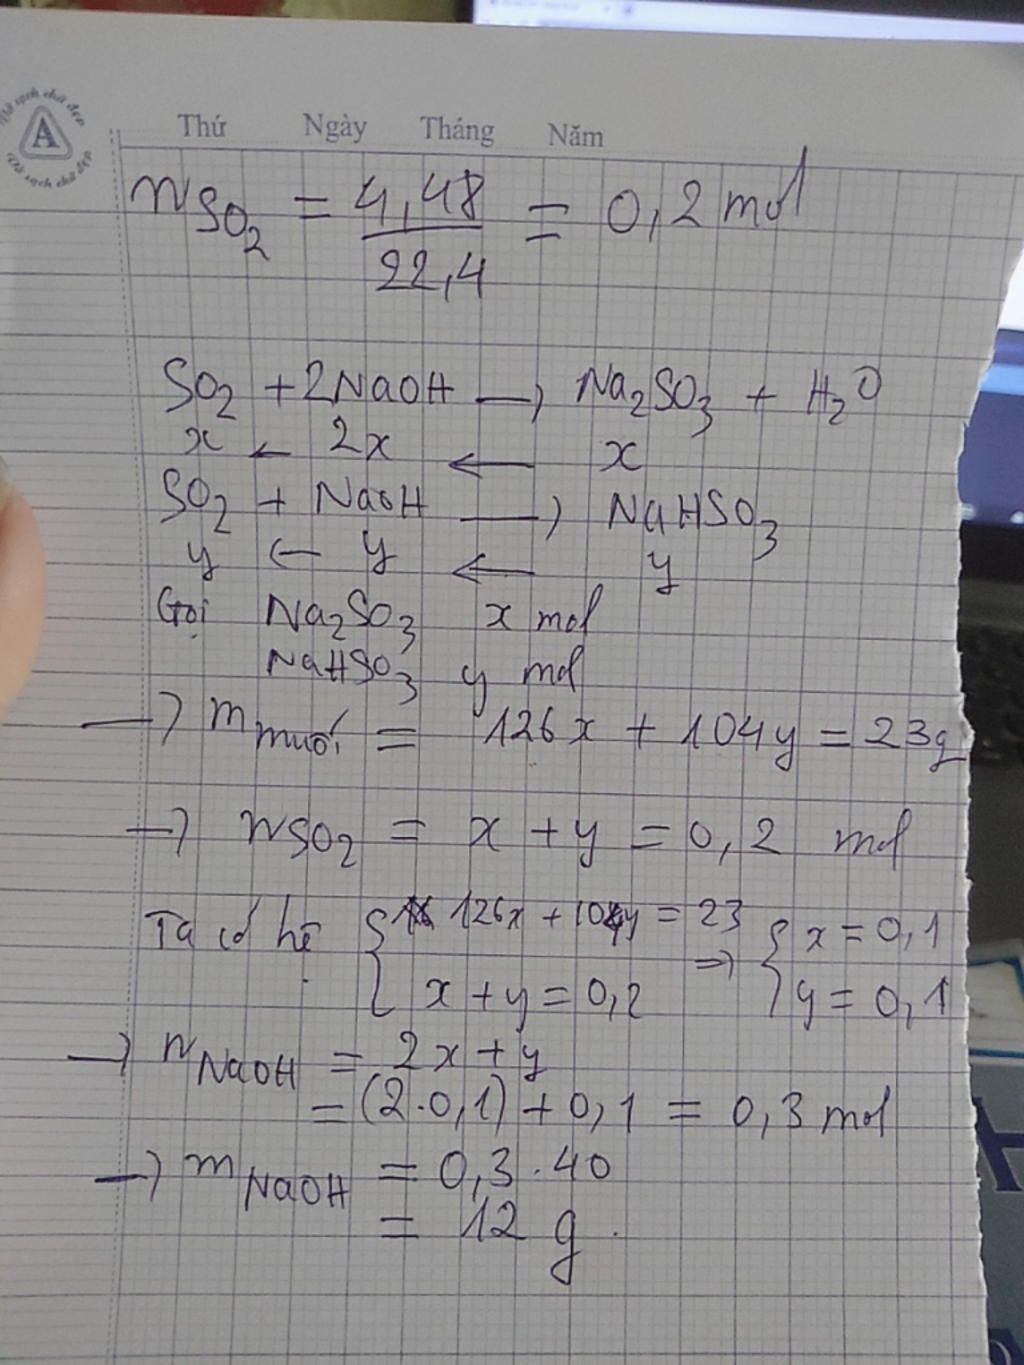 Vở sạch chữ đẹp
A
Vở sạch chữ đẹp
Thứ Ngày Tháng Năm
nSO₂ = 4,48 / 22,4 = 0,2 mol
SO₂ + 2NaOH → Na₂SO₃ + H₂O
x ← 2x ← x
SO₂ + NaOH → NaHSO₃
y ← y ← y
Gọi Na₂SO₃ x mol
NaHSO₃ y mol
→ m muối = 126x + 104y = 23g
→ nSO₂ = x + y = 0,2 mol
Ta có hệ { 126x + 104y = 23 ⇒ { x = 0,1
x + y = 0,2 y = 0,1
→ nNaOH = 2x + y
= (2.0,1) + 0,1 = 0,3 mol
→ mNaOH = 0,3.40
= 12 g.
A